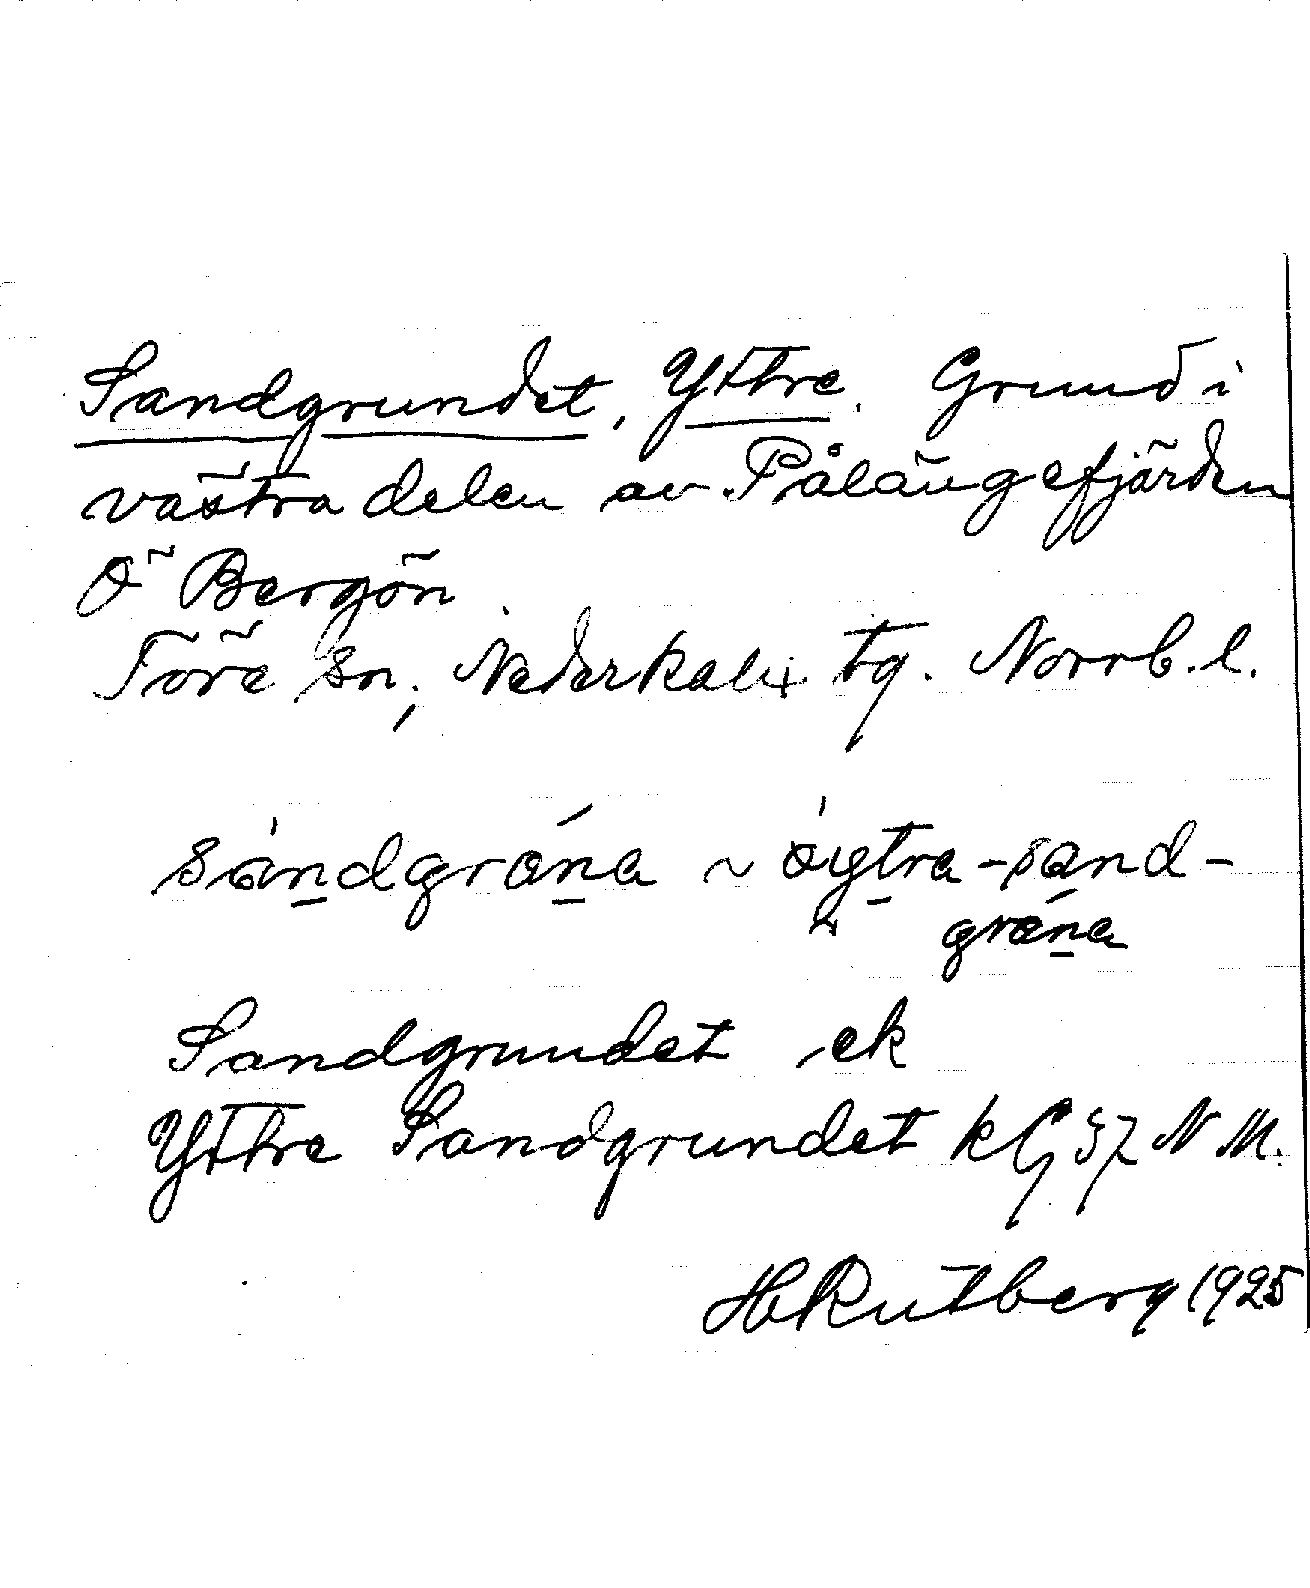 Sandgrundet, Yttre. Grund i
västra delen av Pålängefjärden
Ö Bergön
Töre sn, Nederkalix tg. Norrb. l.
sàndgróna ~ tra-sand-
gróna
Sandgrundet ek
Yttre Sandgrundet k G 37 N M.
H Rutberg 1925